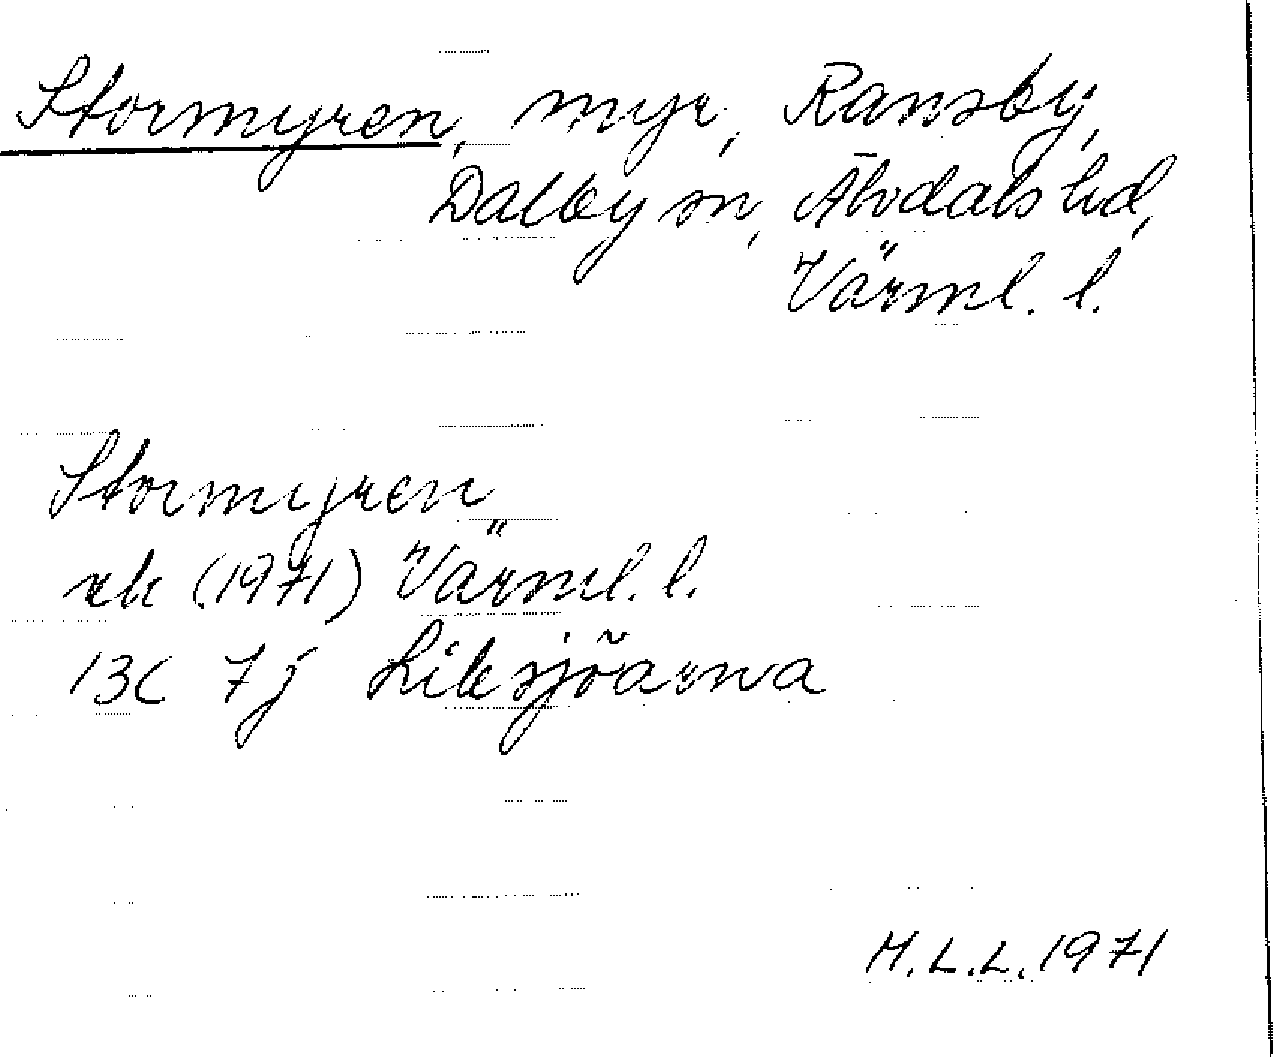 Stormyren, myr, Ransby,
Dalby sn, Älvdals hd,
Värml. l.
Stormyren
rk (1971) Värml. l.
13C 7j Liksjöarna
M.L.L. 1971